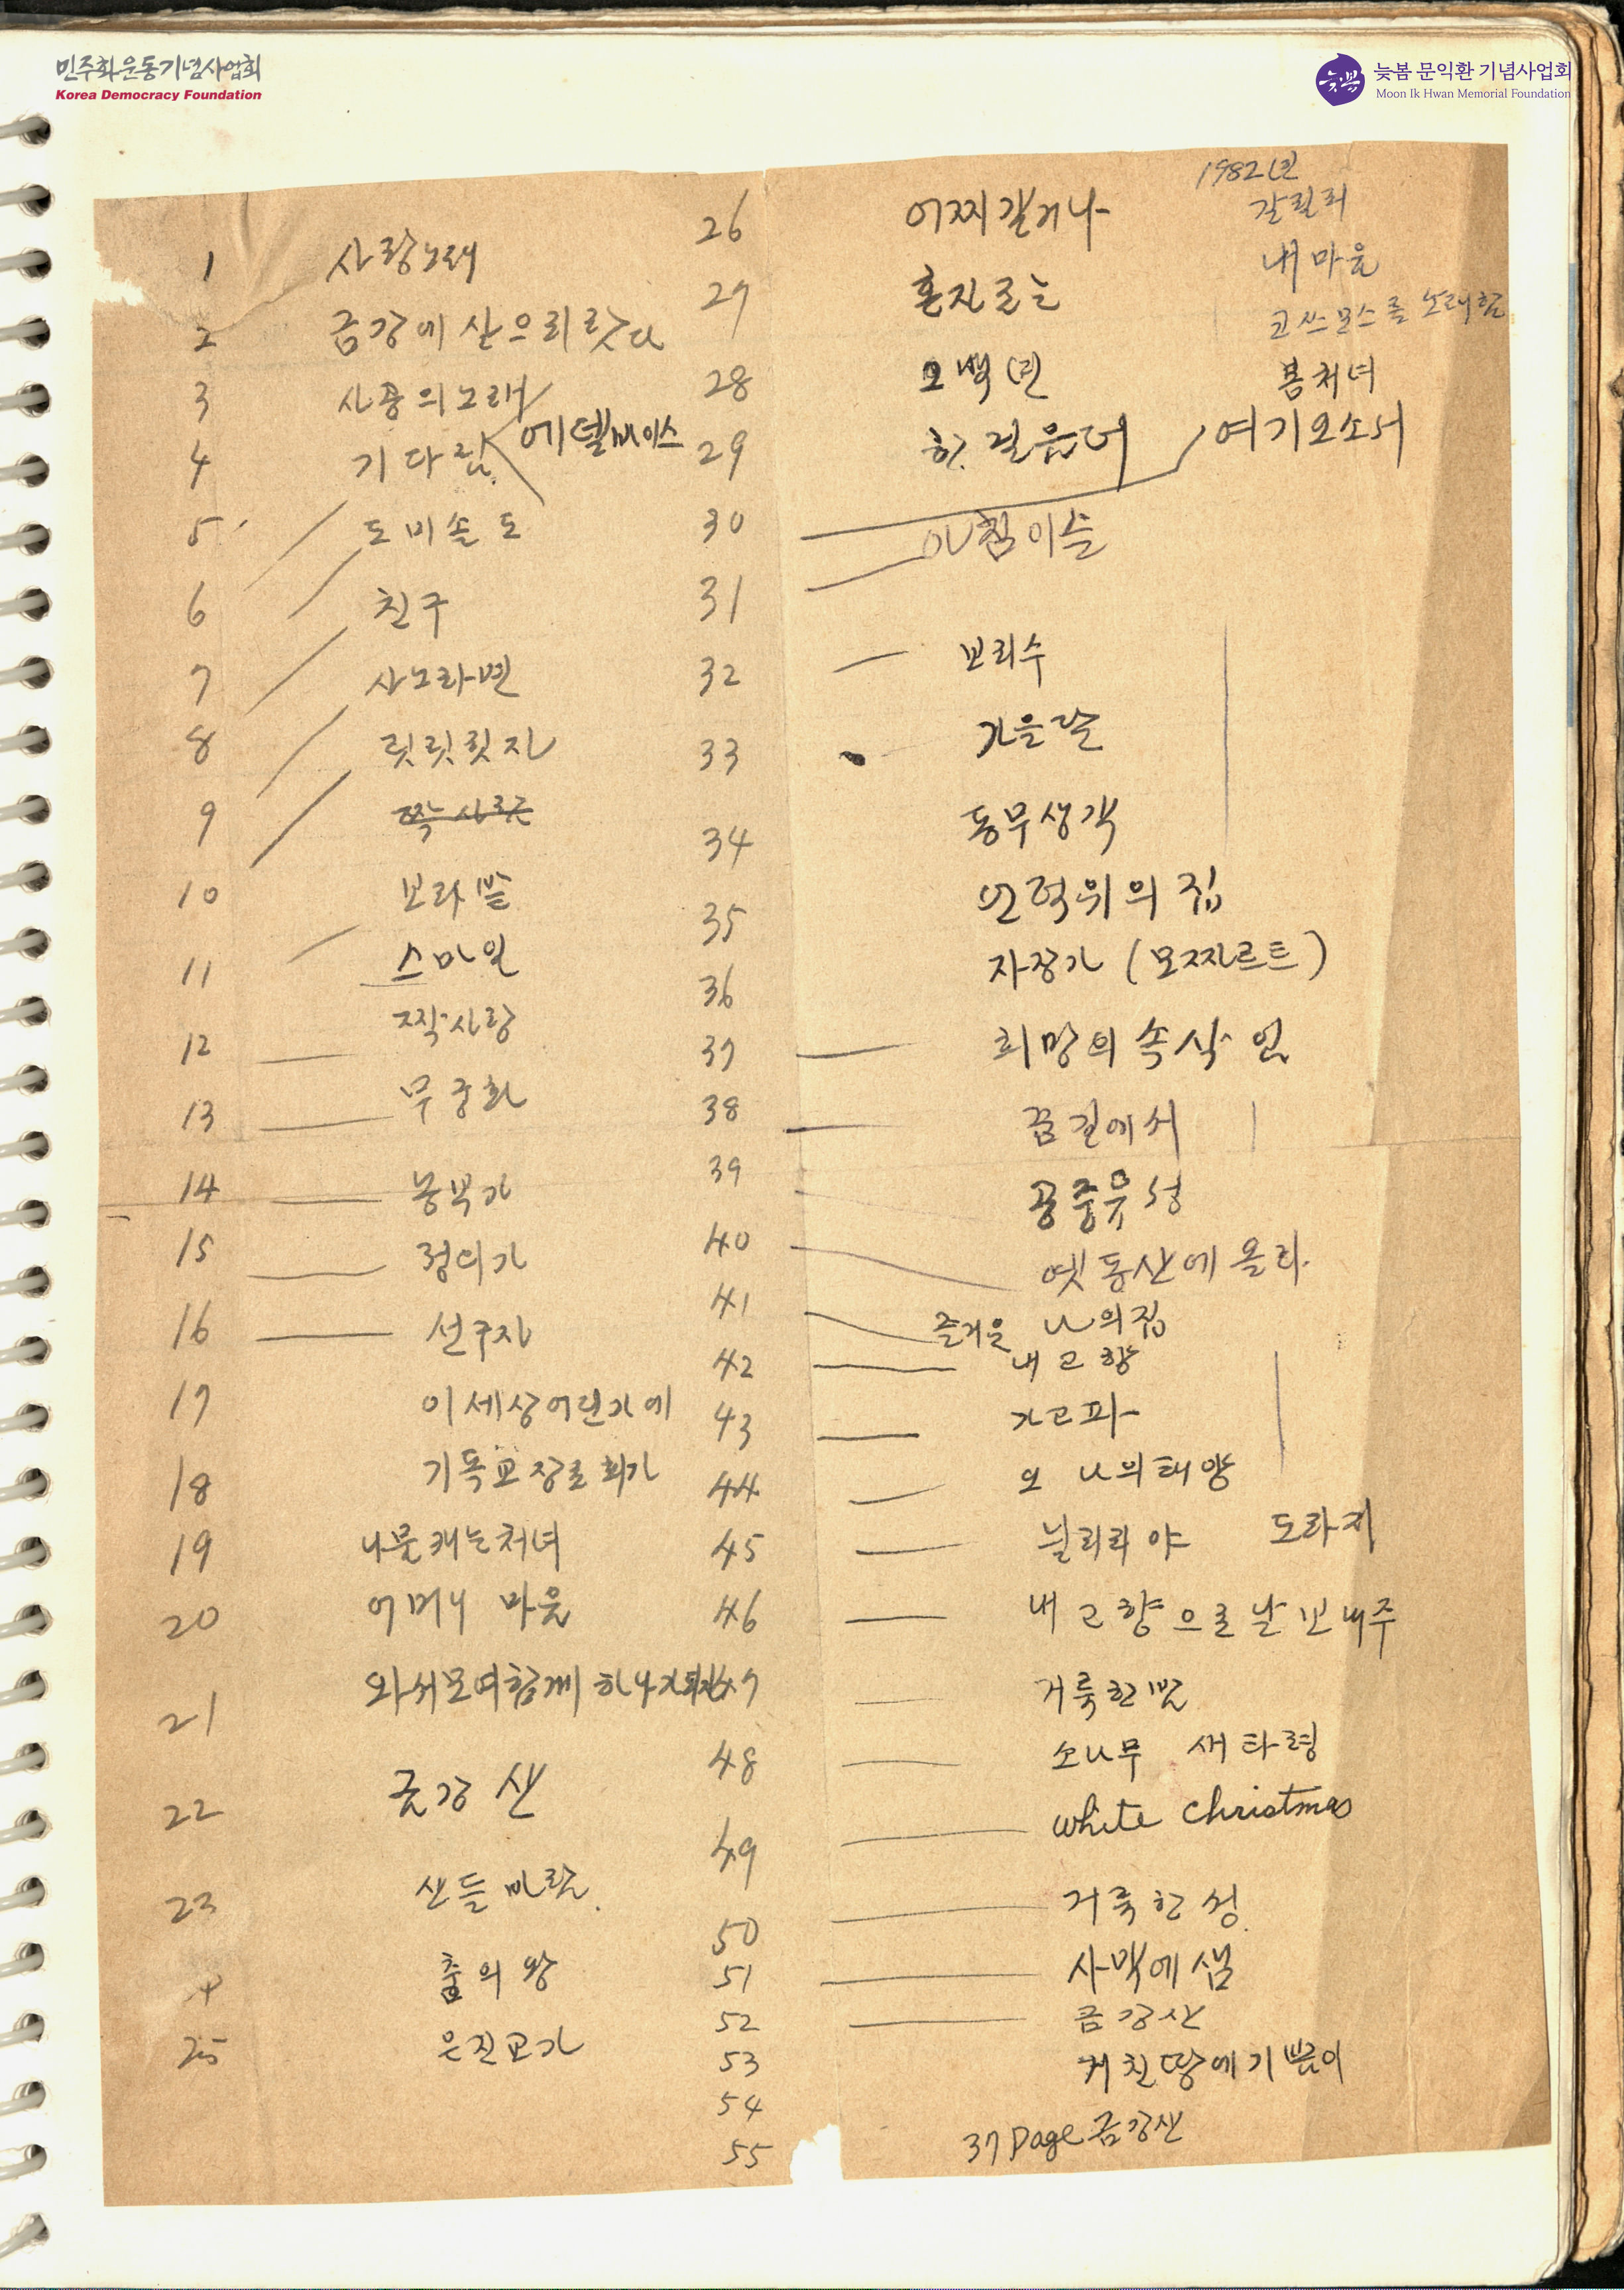 민주화운동기념사업회
Korea Democracy Foundation
늦봄
늦봄 문익환 기념사업회
Moon Ik Hwan Memorial Foundation
1 사랑노래
2 금강에 살으리랏다
3 사공의 노래
4 기다림 에델바이스
5 도미솔도
6 친구
7 사노라면
8 릿릿릿자
9 짝사랑
10 보리밭
11 스마일
12 짝사랑
13 무궁화
14 농부가
15 정의가
16 선구자
17 이세상어딘가에
18 기독교장로회가
19 나물캐는처녀
20 어머니 마음
21 와서모여함께 하나가되자
22 금강산
23 산들바람
춤의 왕
25 은진교가
1982년
갈릴리
내마음
코쓰모스를 노래함
봄처녀
여기오소서
26 어찌갈거나
27 혼자로는
28 오백년
29 한걸음더
30 아침이슬
31
32 보리수
33 가을밤
34 동무생각
35 언덕위의 집
36 자장가 (모짜르트)
37 희망의 속삭임
38 꿈길에서
39 공중유성
40 옛동산에 올라
41 즐거운 나의집
42 내고향
43 가고파
44 오 나의태양
45 닐리리야 도라지
46 내고향으로날보내주
47 거룩한밤
48 소나무 새타령
49 White Christmas
50 거룩한성
51 사막에샘
52 금강산
53 거친땅에기쁨이
54
55 37 Page 금강산